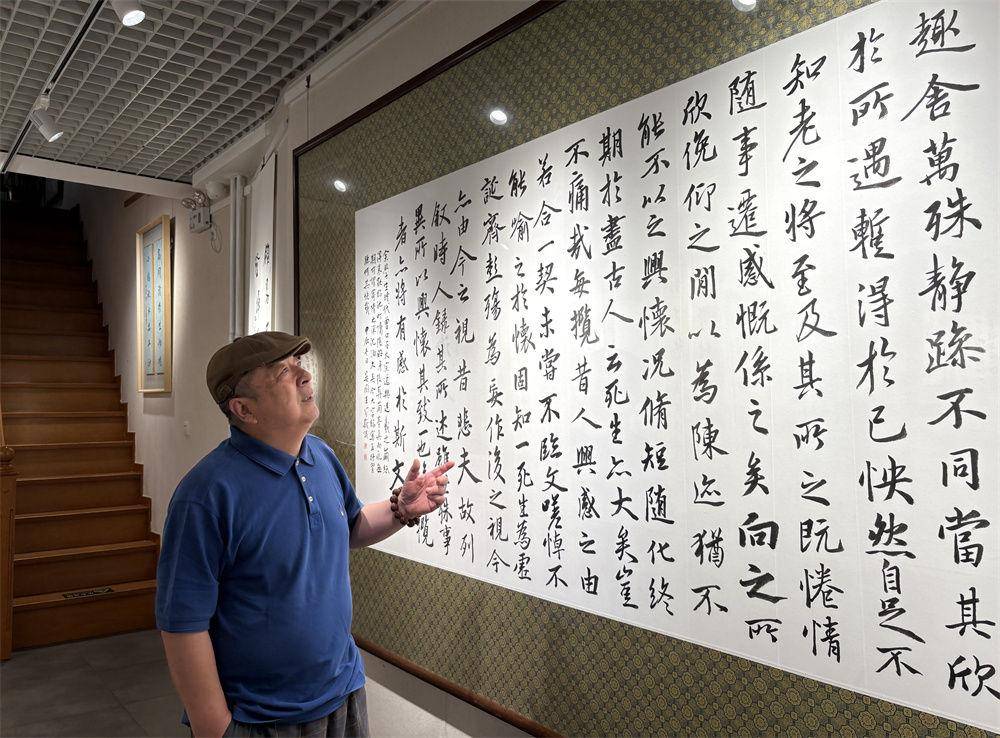 趣舍萬殊静躁不同當其欣
於所遇暫得於己怏然自足不
知老之將至及其所之既惓情
隨事遷感慨係之矣向之所
欣俛仰之閒以為陳迹猶不
能不以之興懷况脩短隨化終
期於盡古人云死生亦大矣豈
不痛哉每攬昔人興感之由
若合一契未嘗不臨文嗟悼不
能喻之於懷固知一死生為虛
誕齊彭殤為妄作後之視今
亦由今之視昔悲夫故列
叙時人錄其所述雖殊事
異所以興懷其致一也攬
者亦將有感於斯文